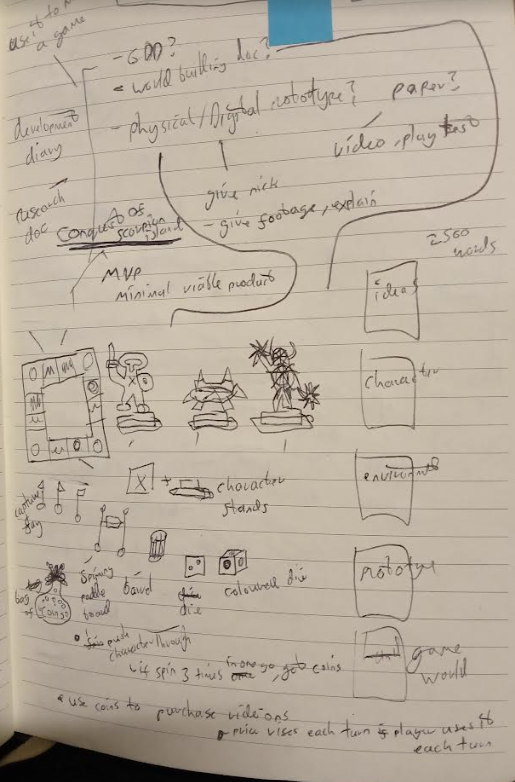 use it to
a game
- GDD?
- world building doc?
- physical/Digital prototype?
paper?
video, play test
development
diary
give nick
- give footage, explain
research
doc
Conquest of
scorpion
island
2500
words
MVP
minimal viable product
ideas
character
X + character
stands
environment
capture
flag
spinning
paddle
board
barrel
dice
coloured dice
prototype
bag
of
coins
push
character through
- if spin 3 times in one go, get coins
game
world
use coins to purchase
price rises each turn if player uses it
each turn